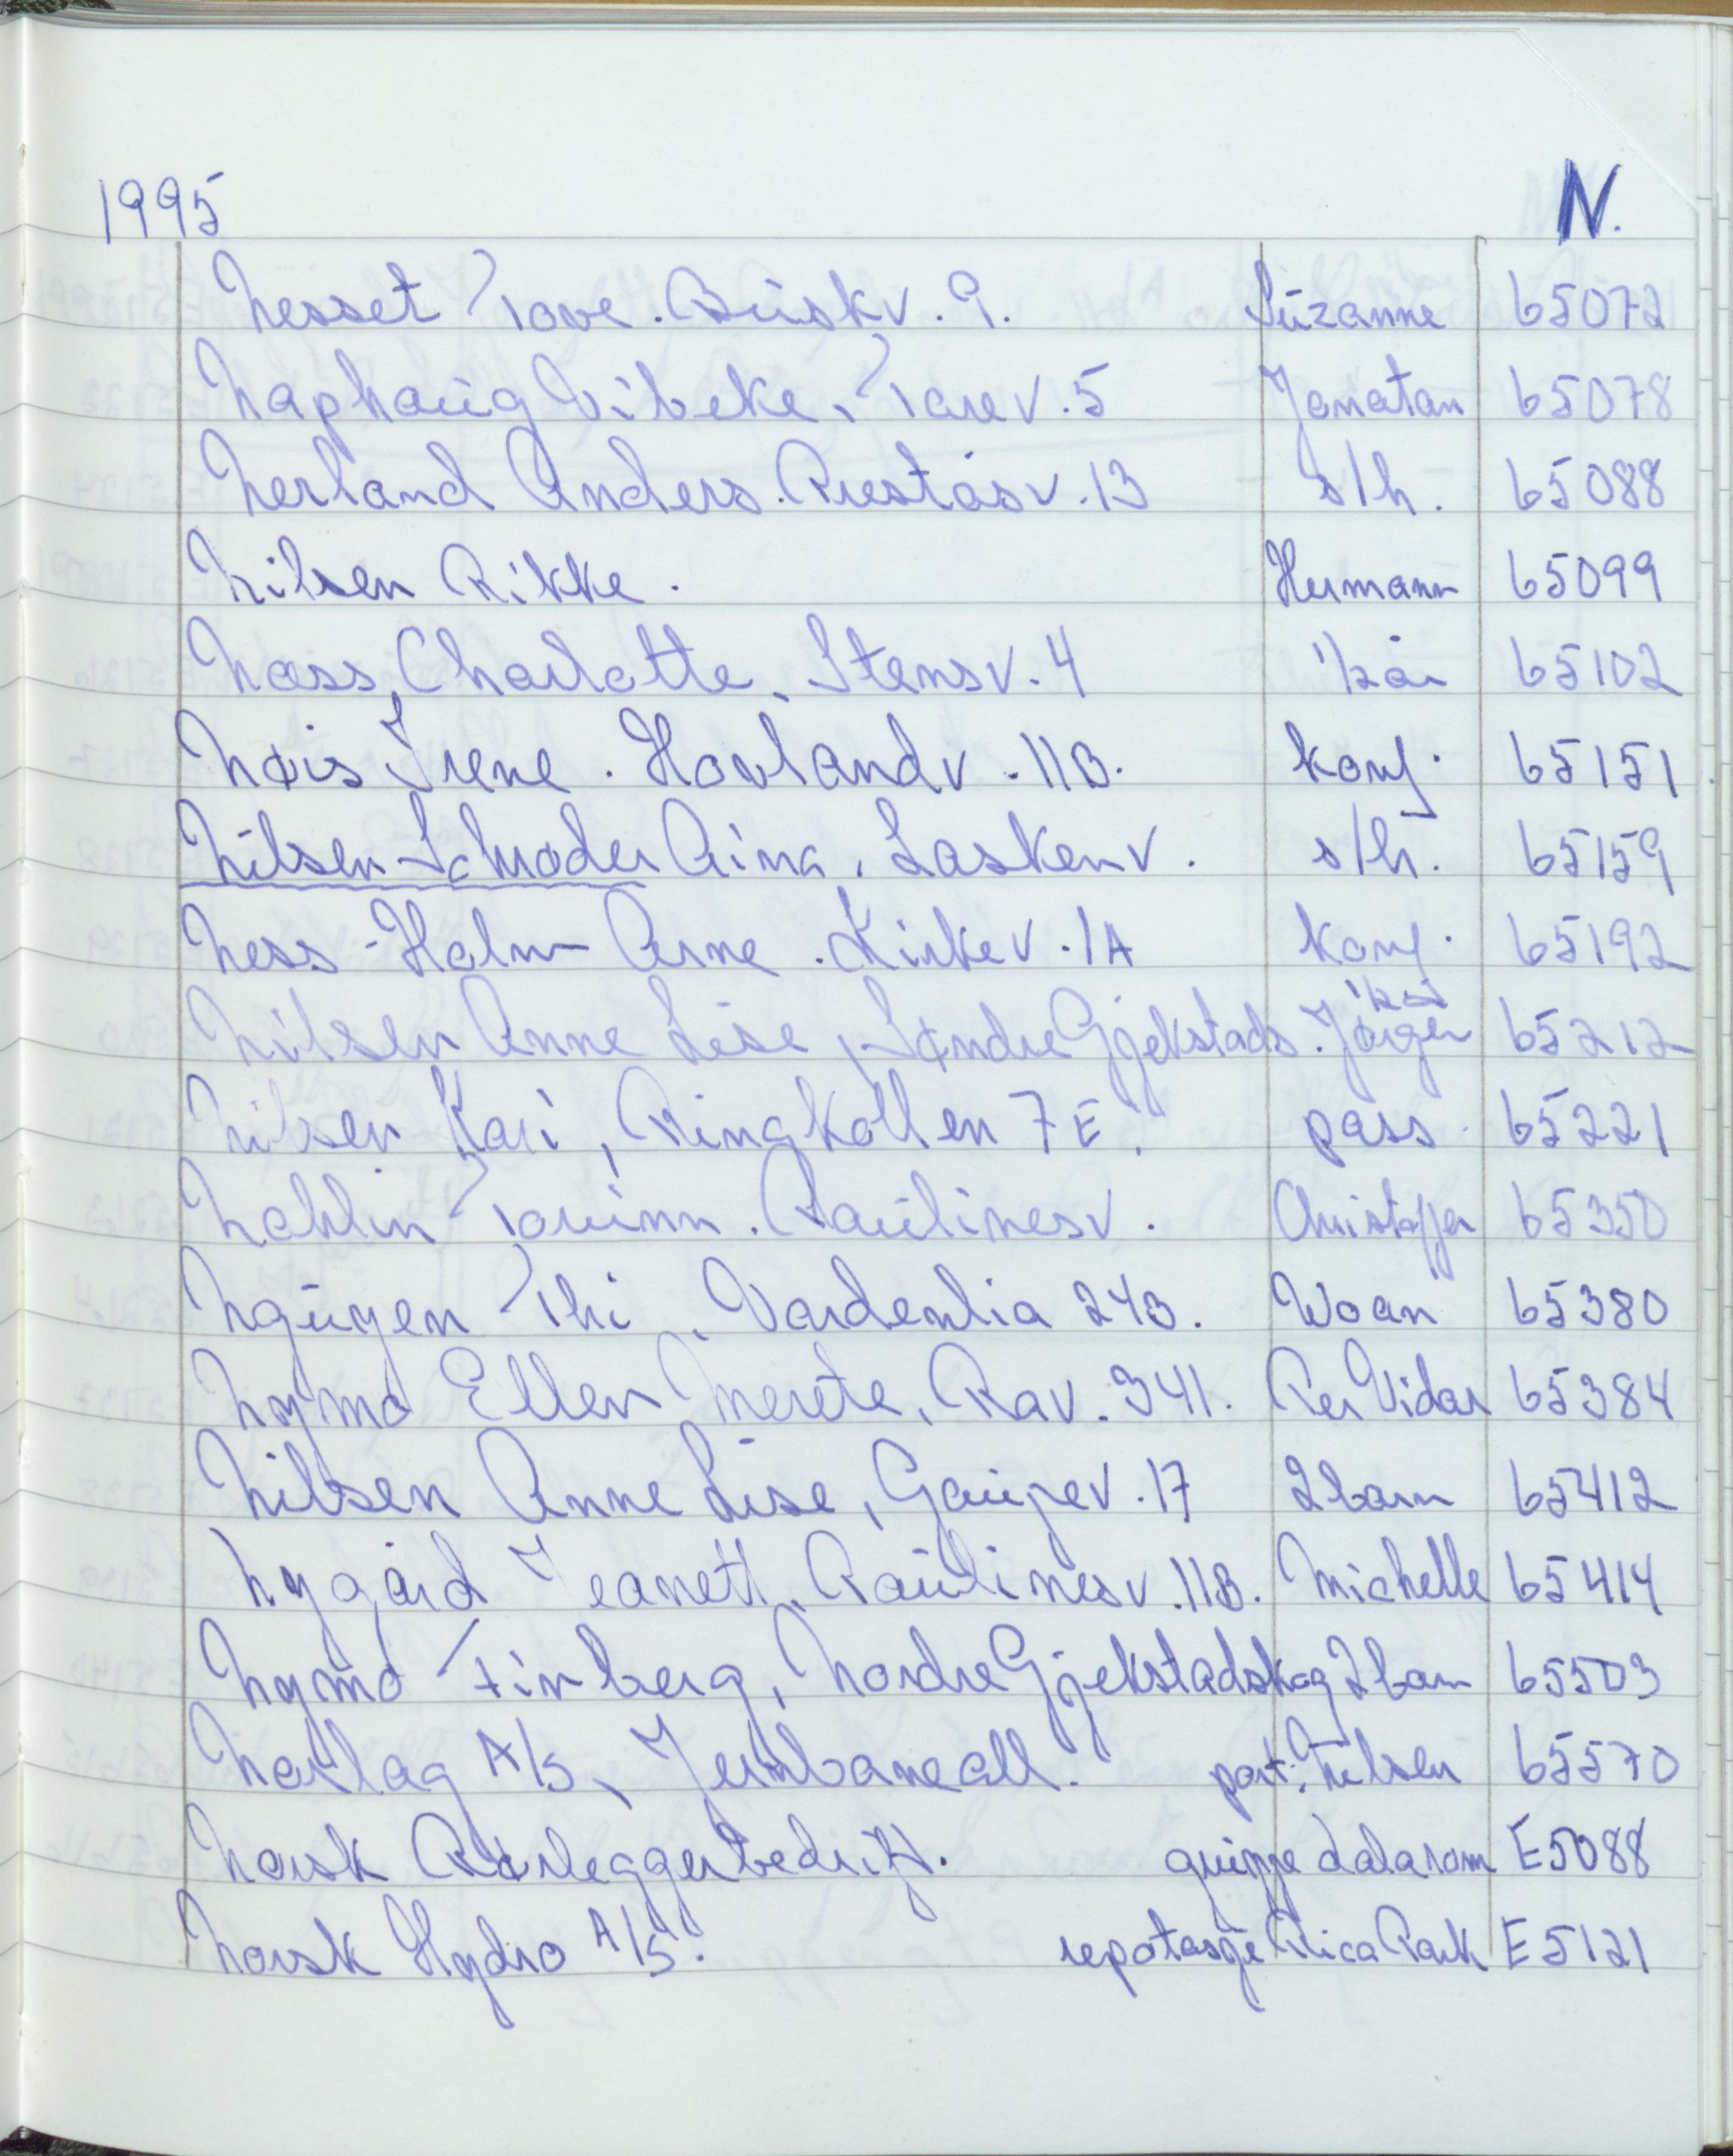 1995 N.
Nesset Tove. Buskv. 9. Suzanne 65072
Naphaug Vibeke, Torev. 5 Jonatan 65078
Nerland Anders. Preståsv. 13 s/h. 65088
Nilsen Rikke. Hermann 65099
Næss, Charlotte, Stensv. 4 1/2 år 65102
Nøis Irene. Hovlandv. 11B. konf. 65151
Nilsen-Schrøder Aina, Laskenv. s/h. 65159
Ness-Holm Arne. Kirkev. 1A konf. 65192
Nilsen Anne Lise, Søndre Gjekstads. Jørgen 1/2 år 65212
Nilsen Kari, Ringkollen 7E. pass 65221
Nohlin Tourinn. Paulinesv. Christoffer 65350
Nguyen Thi, Vardenlia 24B. Woan 65380
Nymo Ellen Merete, Rav. 341. Per Vidar 65384
Nilsen Anne Lise, Gaupev. 17 2 barn 65412
Nygård Jeanett, Paulinesv. 11B. Michelle 65414
Nymo Finberg, Nordre Gjekstadskog 2 barn 65503
Norlag A/S, Jernbaneall. port. Nilsen 65570
Norsk Rørleggerbedrift. gruppe datarom E5088
Norsk Hydro A/S. repotasje Rica Park E5121